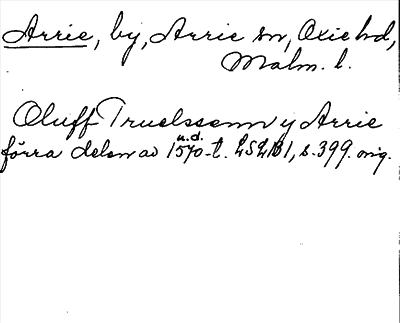 Arrie, by, Arrie sn, Oxie hd,
Malm. l.
Oluff Truelssenn y Arrie
u.d.
förra delen av 1570-t. LSLB1, s. 399. orig.